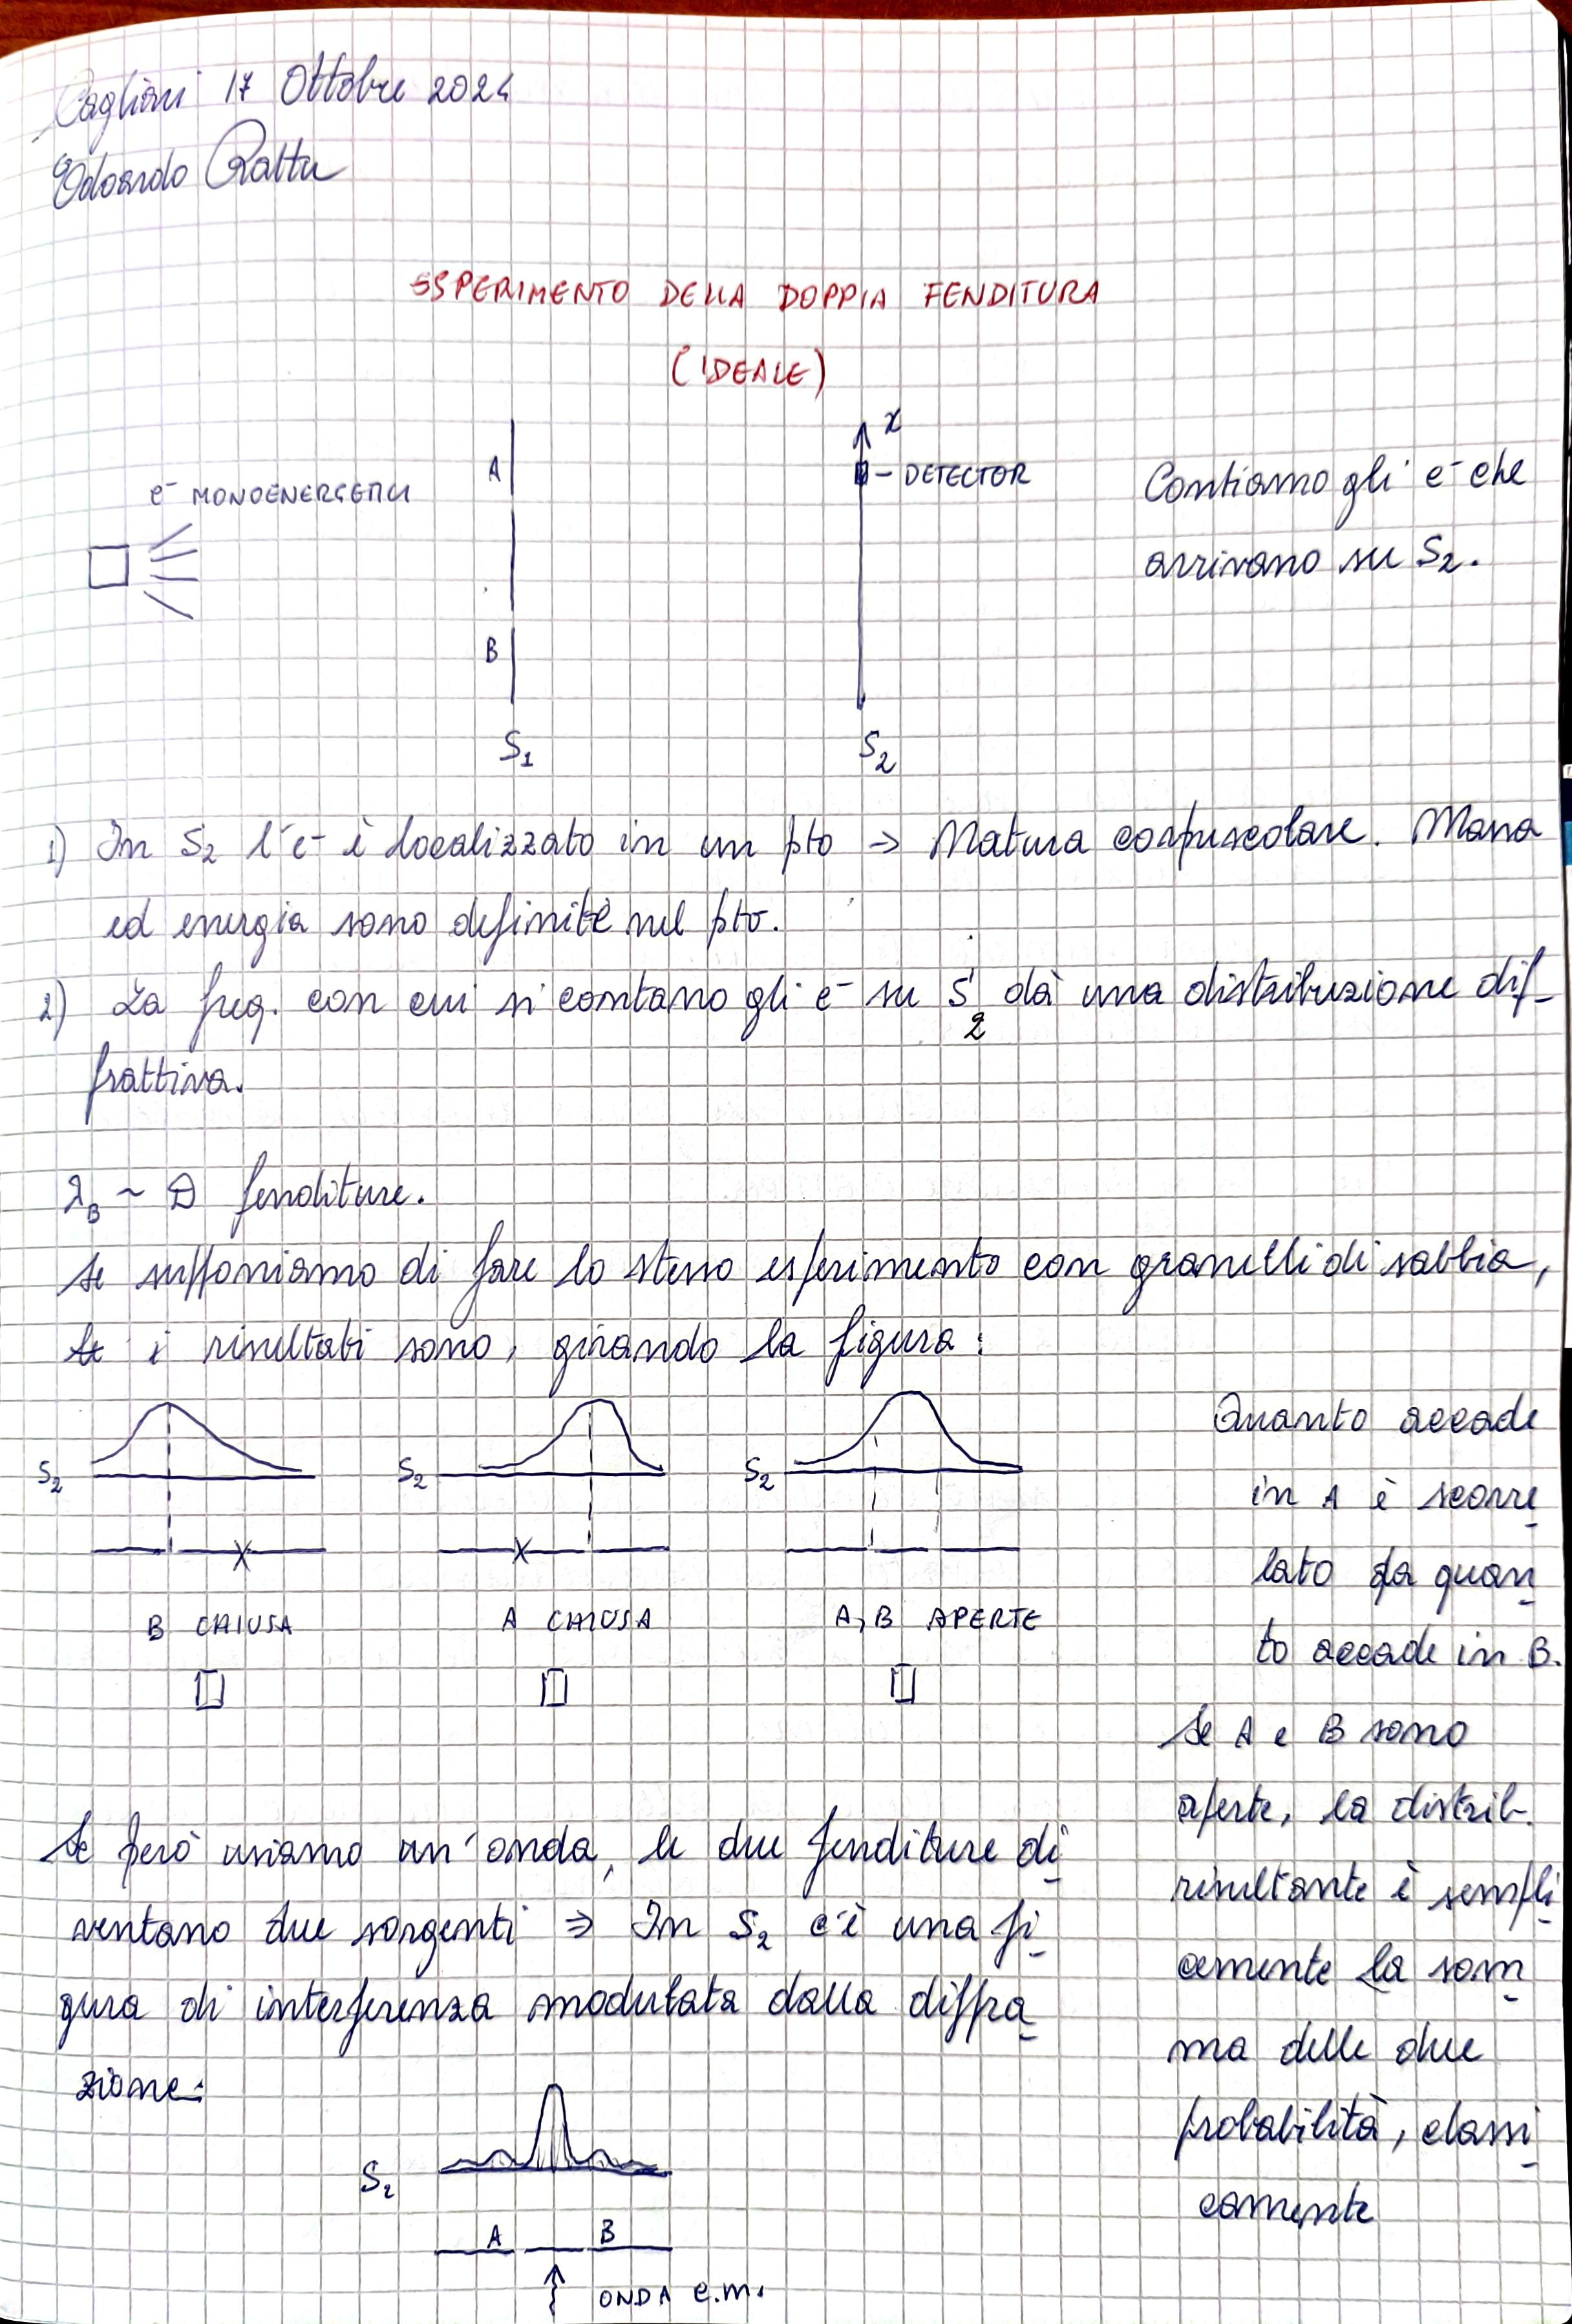 Cagliari 17 Ottobre 2024
Edoardo Rattu
ESPERIMENTO DELLA DOPPIA FENDITURA
(IDEALE)
x
A
- DETECTOR
e⁻ MONOENERGETICI
Contiamo gli e⁻ che
arrivano su S₂.
B
S₁
S₂
1) In S₂ l'e⁻ è localizzato in un pto → Natura corpuscolare. Massa
ed energia sono definite nel pto.
2) La freq. con cui si contano gli e⁻ su S₂ dà una distribuzione dif-
frattiva.
λ_B ~ D fenditure.
Se supponiamo di fare lo stesso esperimento con granelli di sabbia,
i risultati sono, girando la figura:
S₂
S₂
S₂
B CHIUSA
A CHIUSA
A, B APERTE
Quanto accade
in A è scorre_
lato da quan_
to accade in B.
Se A e B sono
aperte, la distrib.
risultante è sempli_
cemente la som_
ma delle due
probabilità, classi_
camente
Se però usiamo un'onda, le due fenditure di_
ventano due sorgenti ⇒ In S₂ c'è una fi_
gura di interferenza modulata dalla diffra_
zione:
S₂
A
B
ONDA e.m.